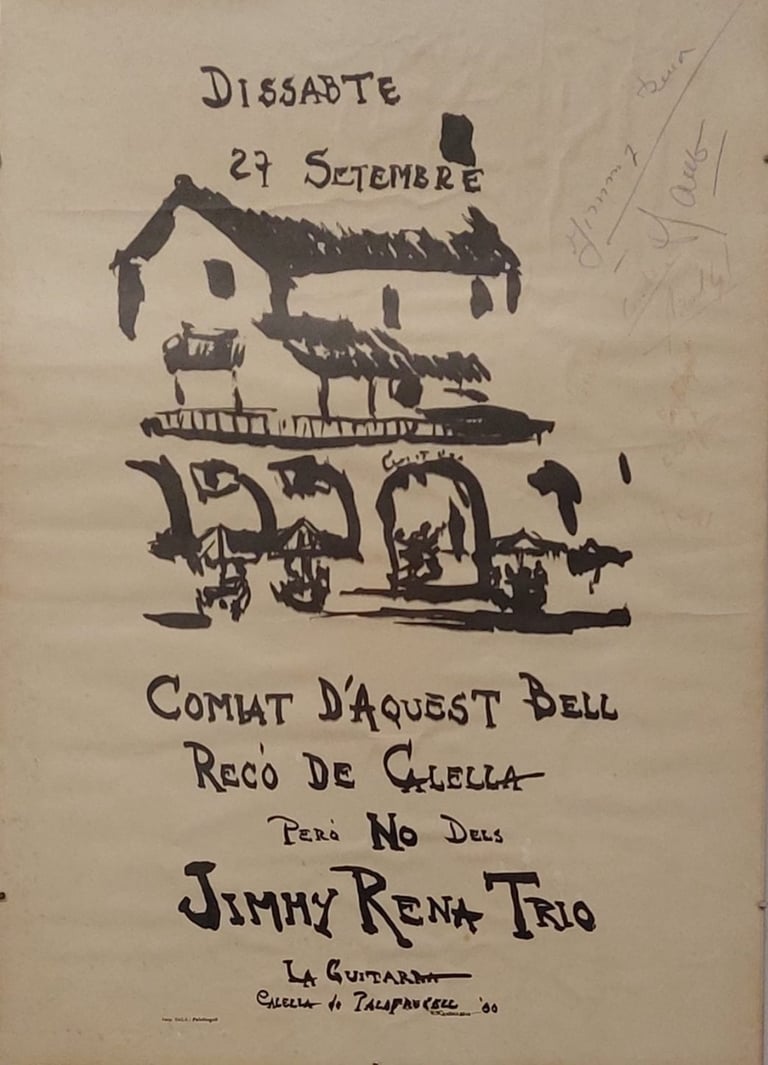 DISSABTE
27 SETEMBRE
Jimmy Rena
COMIAT D'AQUEST BELL
RECÓ DE CALELLA
PERÒ NO DELS
JIMMY RENA TRIO
LA GUITARRA
CALELLA de PALAFRUGELL '80